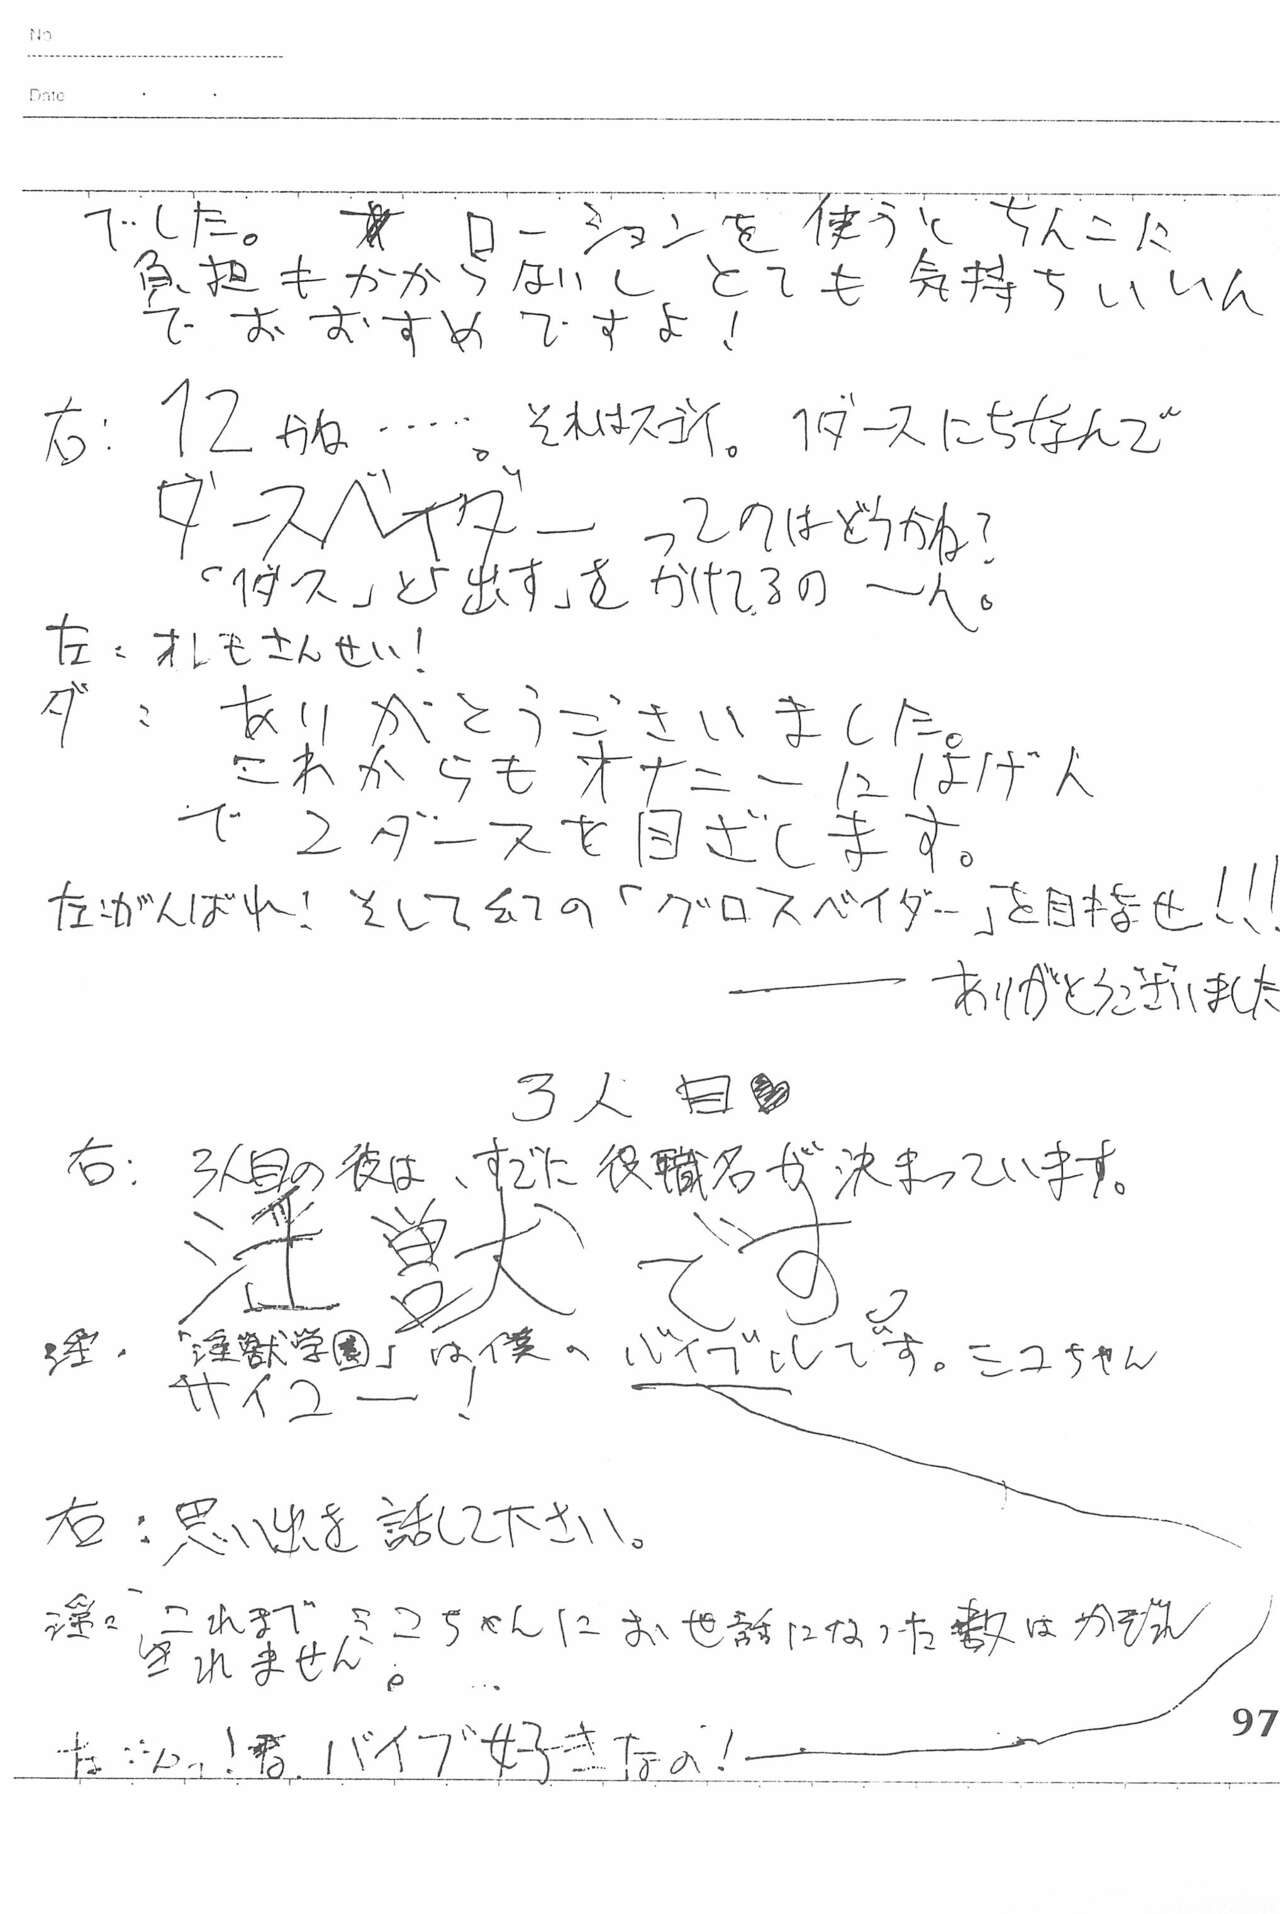 No
Date
でした。 ローションを使うと ちんこに
負担もかからないし とても気持ちいいん
で おすすめですよ!
右: 12かね……。それはスゴイ。1ダースにちなんで
ダースベイダー ってのはどうかね?
「1ダス」と「出す」をかけてるの〜ん。
左: オレもさんせい!
ダ: ありがとうございました。
これからもオナニーにはげん
で 2ダースを目ざします。
左:がんばれ!そして全ての「グロスベイダー」を目指せ!!!
―― ありがとうございました
3人目♥
右: 3人目の彼は、すでに役職名が決まっています。
淫獣です。
淫: 「淫獣学園」は僕のバイブルです。ミコちゃん
サイコー!
右: 思い出を話して下さい。
淫: これまでミコちゃんにお世話になった数はかぞえ
きれません。…
えっ!君、バイブ好きなの!
97